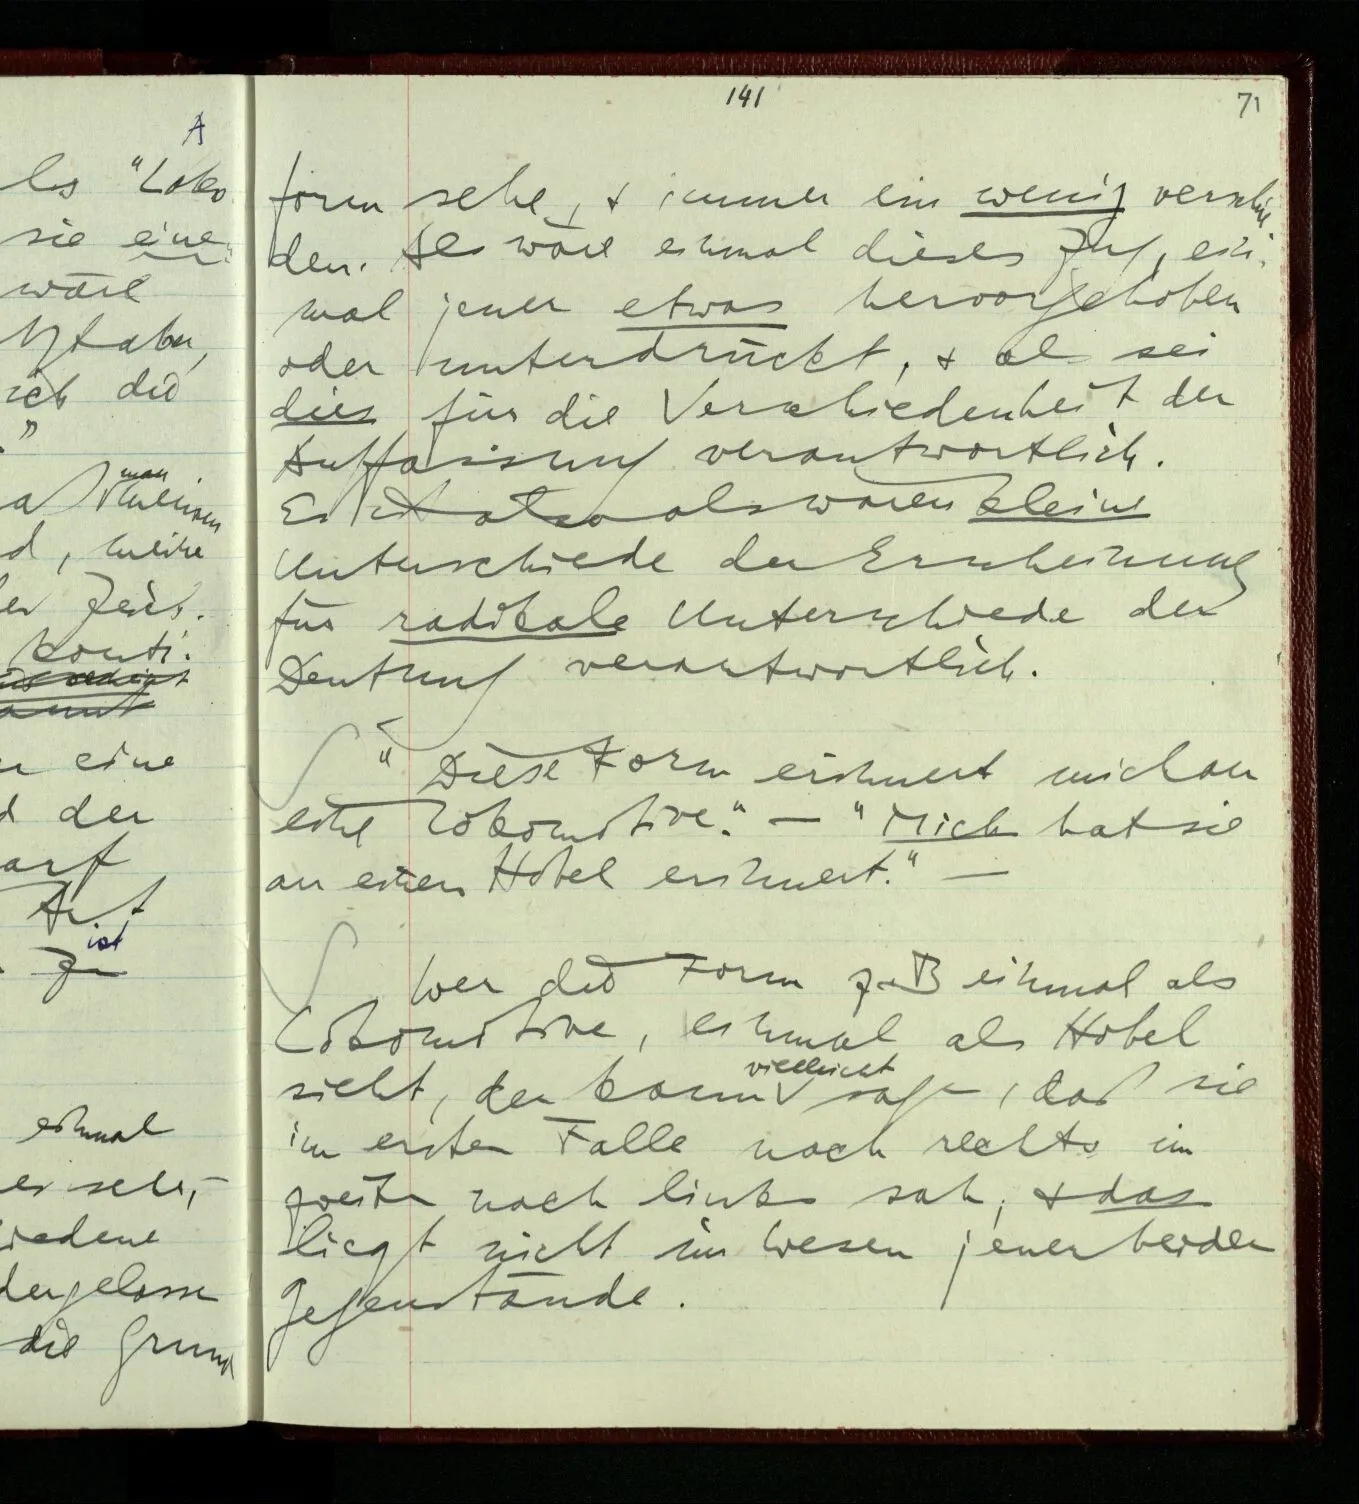 141
71
A
als "Loko
sie eine
wäre
sich die
man
, welche
der Zeit.
konti.
eine
der
darf
Art
ist
einmal
er sehe, –
schiedene
dergelasse
die Grund
form sehe, & immer ein wenig verschie
den. Als wäre einmal dieser Zug, ein-
mal jener etwas hervorgehoben
oder unterdrückt, & als sei
dies für die Verschiedenheit der
Auffassung verantwortlich.
Es ist also als waren kleine
Unterschiede der Erscheinung
für radikale Unterschiede der
Deutung verantwortlich.
"Diese Form erinnert mich an
eine Lokomotive." — "Mich hat sie
an einen Hobel erinnert." —
Wer die Form z.B. einmal als
Lokomotive, einmal als Hobel
vielleicht
sieht, der kann sagen, daß sie
im ersten Falle nach rechts im
zweiten nach links sah, & das
liegt nicht im Wesen jener beiden
Gegenstände.